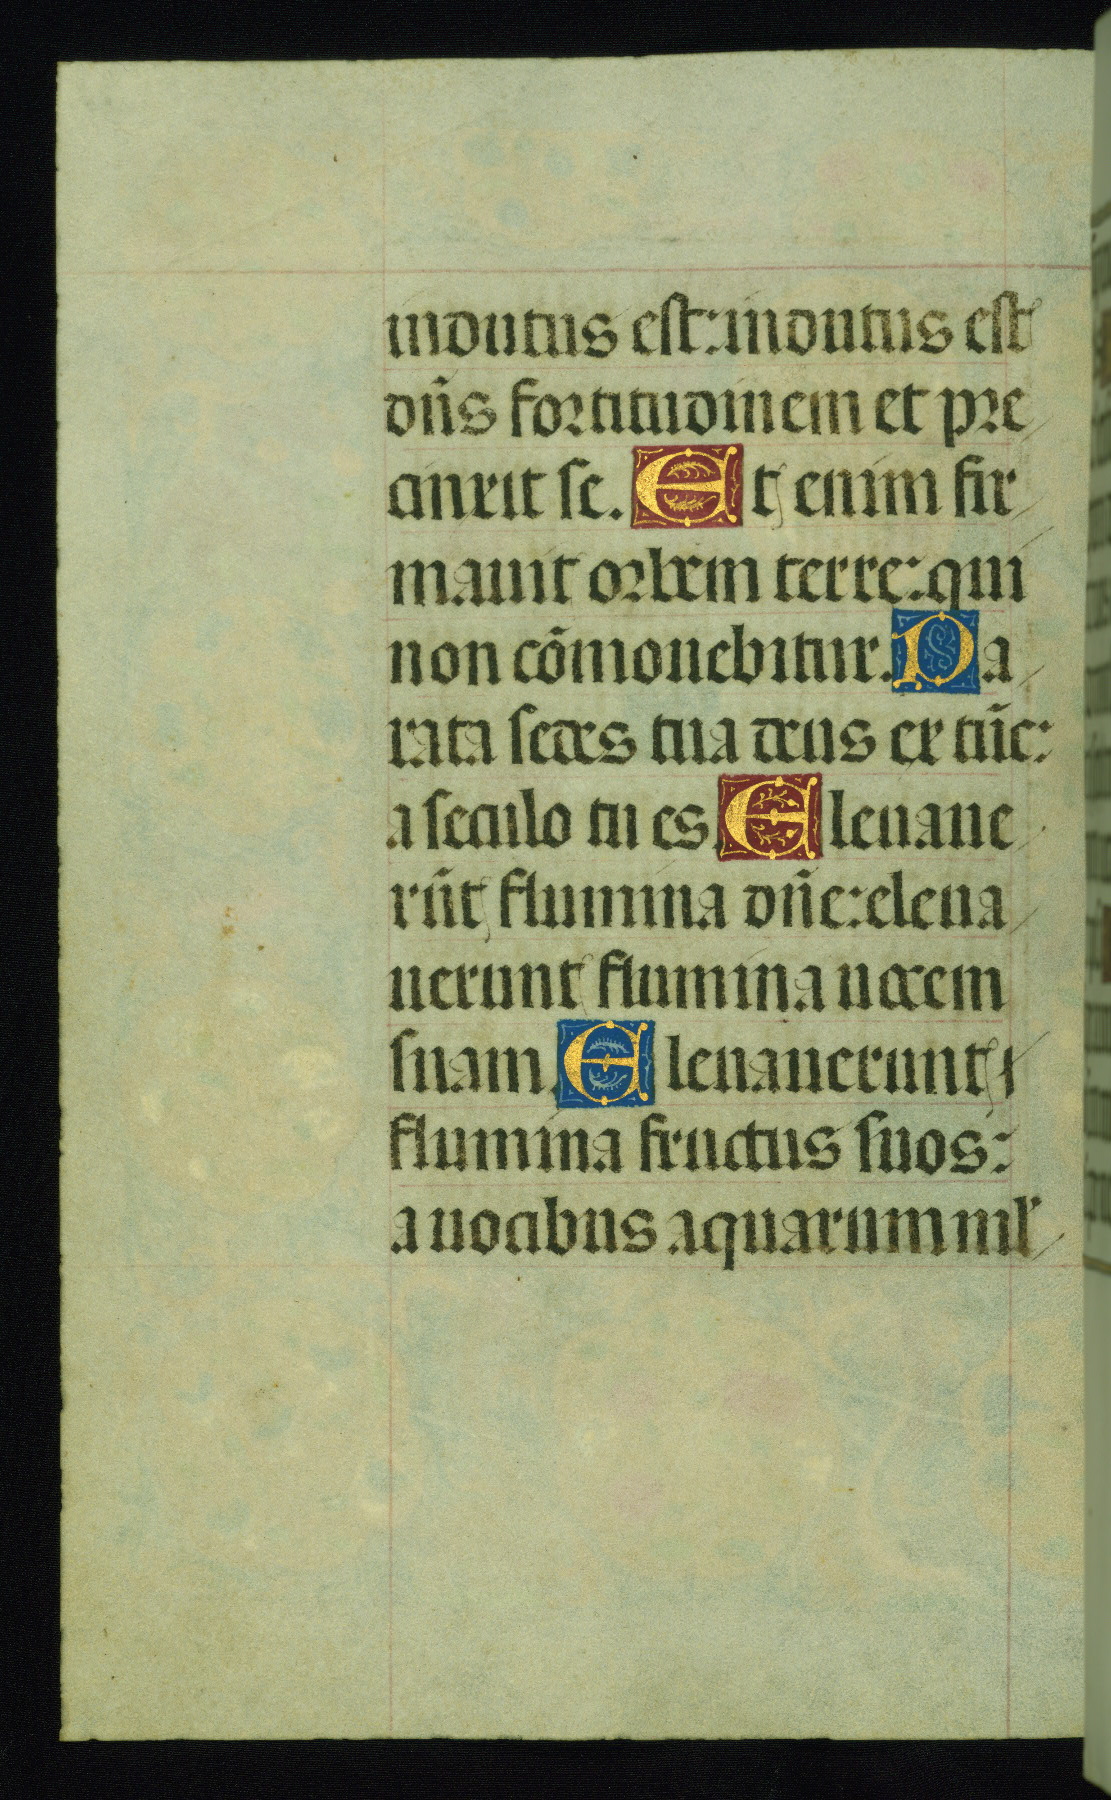 indutus est: indutus est
dn̄s fortitudinem et pre
cinxit se. Et enim fir
mauit orbem terre: qui
non cōmouebitur. Pa
rata sedes tua deus ex tūc:
a seculo tu es. Eleuaue
rūt flumina dn̄e: eleua
uerunt flumina uocem
suam. Eleuauerunt
flumina fructus suos:
a uocibus aquarum ml̓